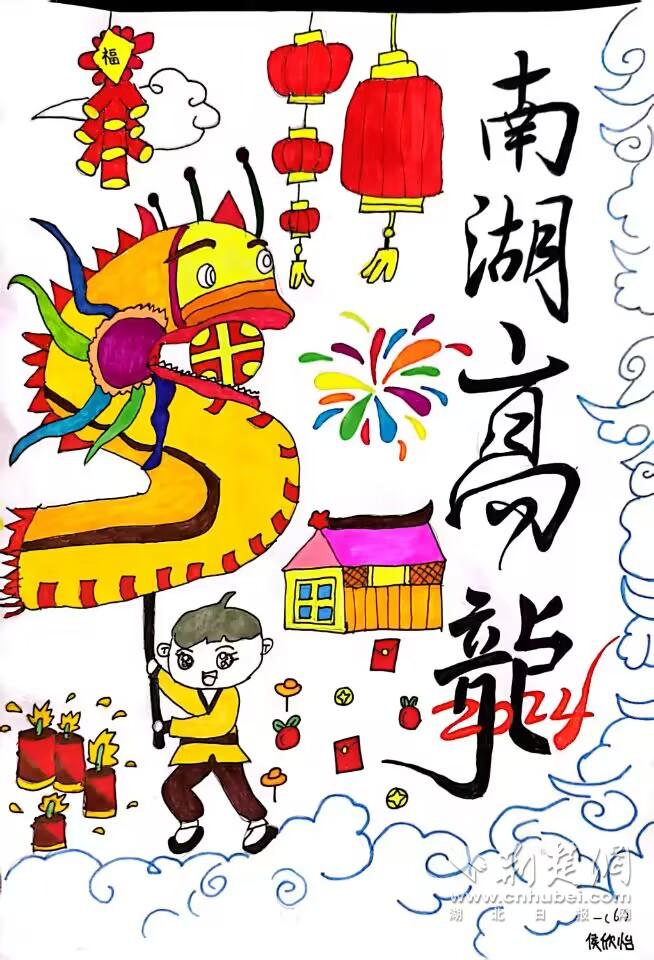 福
南湖高龍
2024
荆楚网
www.cnhubei.com
湖北日报网
一(6)
侯欣怡